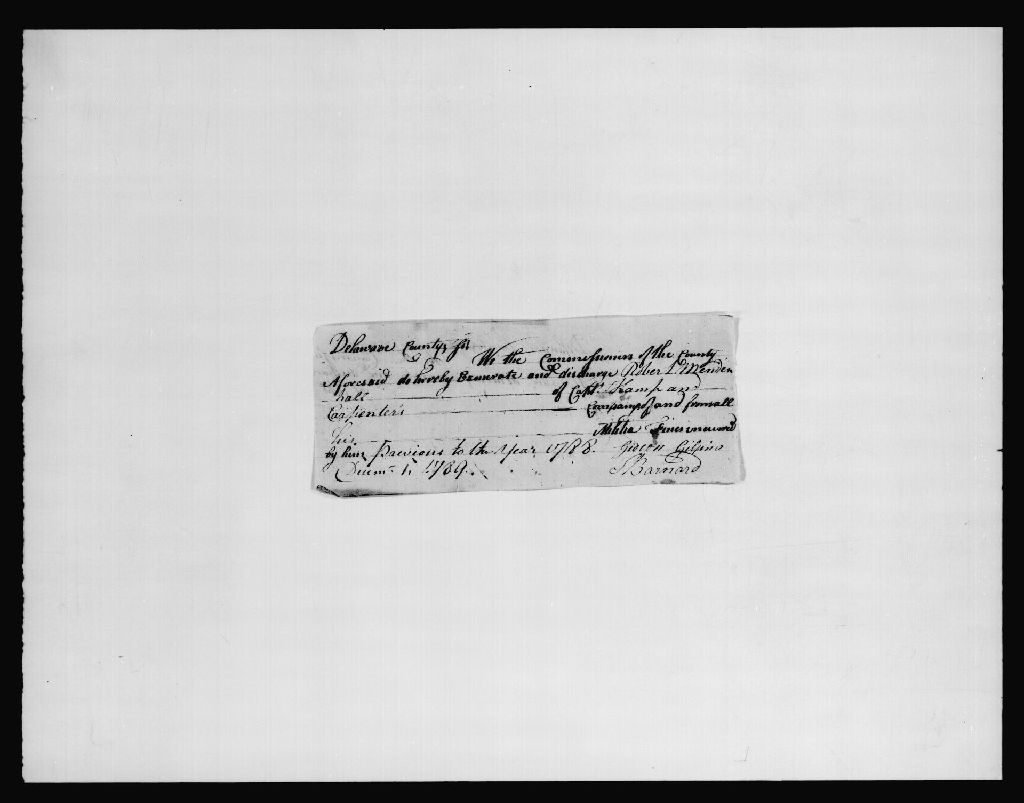 Delaware County ss
We the Commissioners of the County
Aforesaid do hereby Exonerate and discharge Rober L Menden
hall of Capt. Kamp and
Carpenters Company and from all
his Militia Fines incurred
by him Previous to the Year 1788. Gideon Gilpin
Decemr 1. 1789. J Barnard